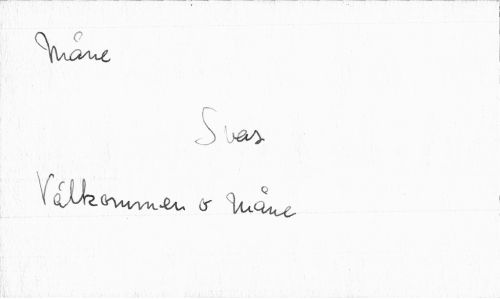 Måne
Svas
Välkommen o måne